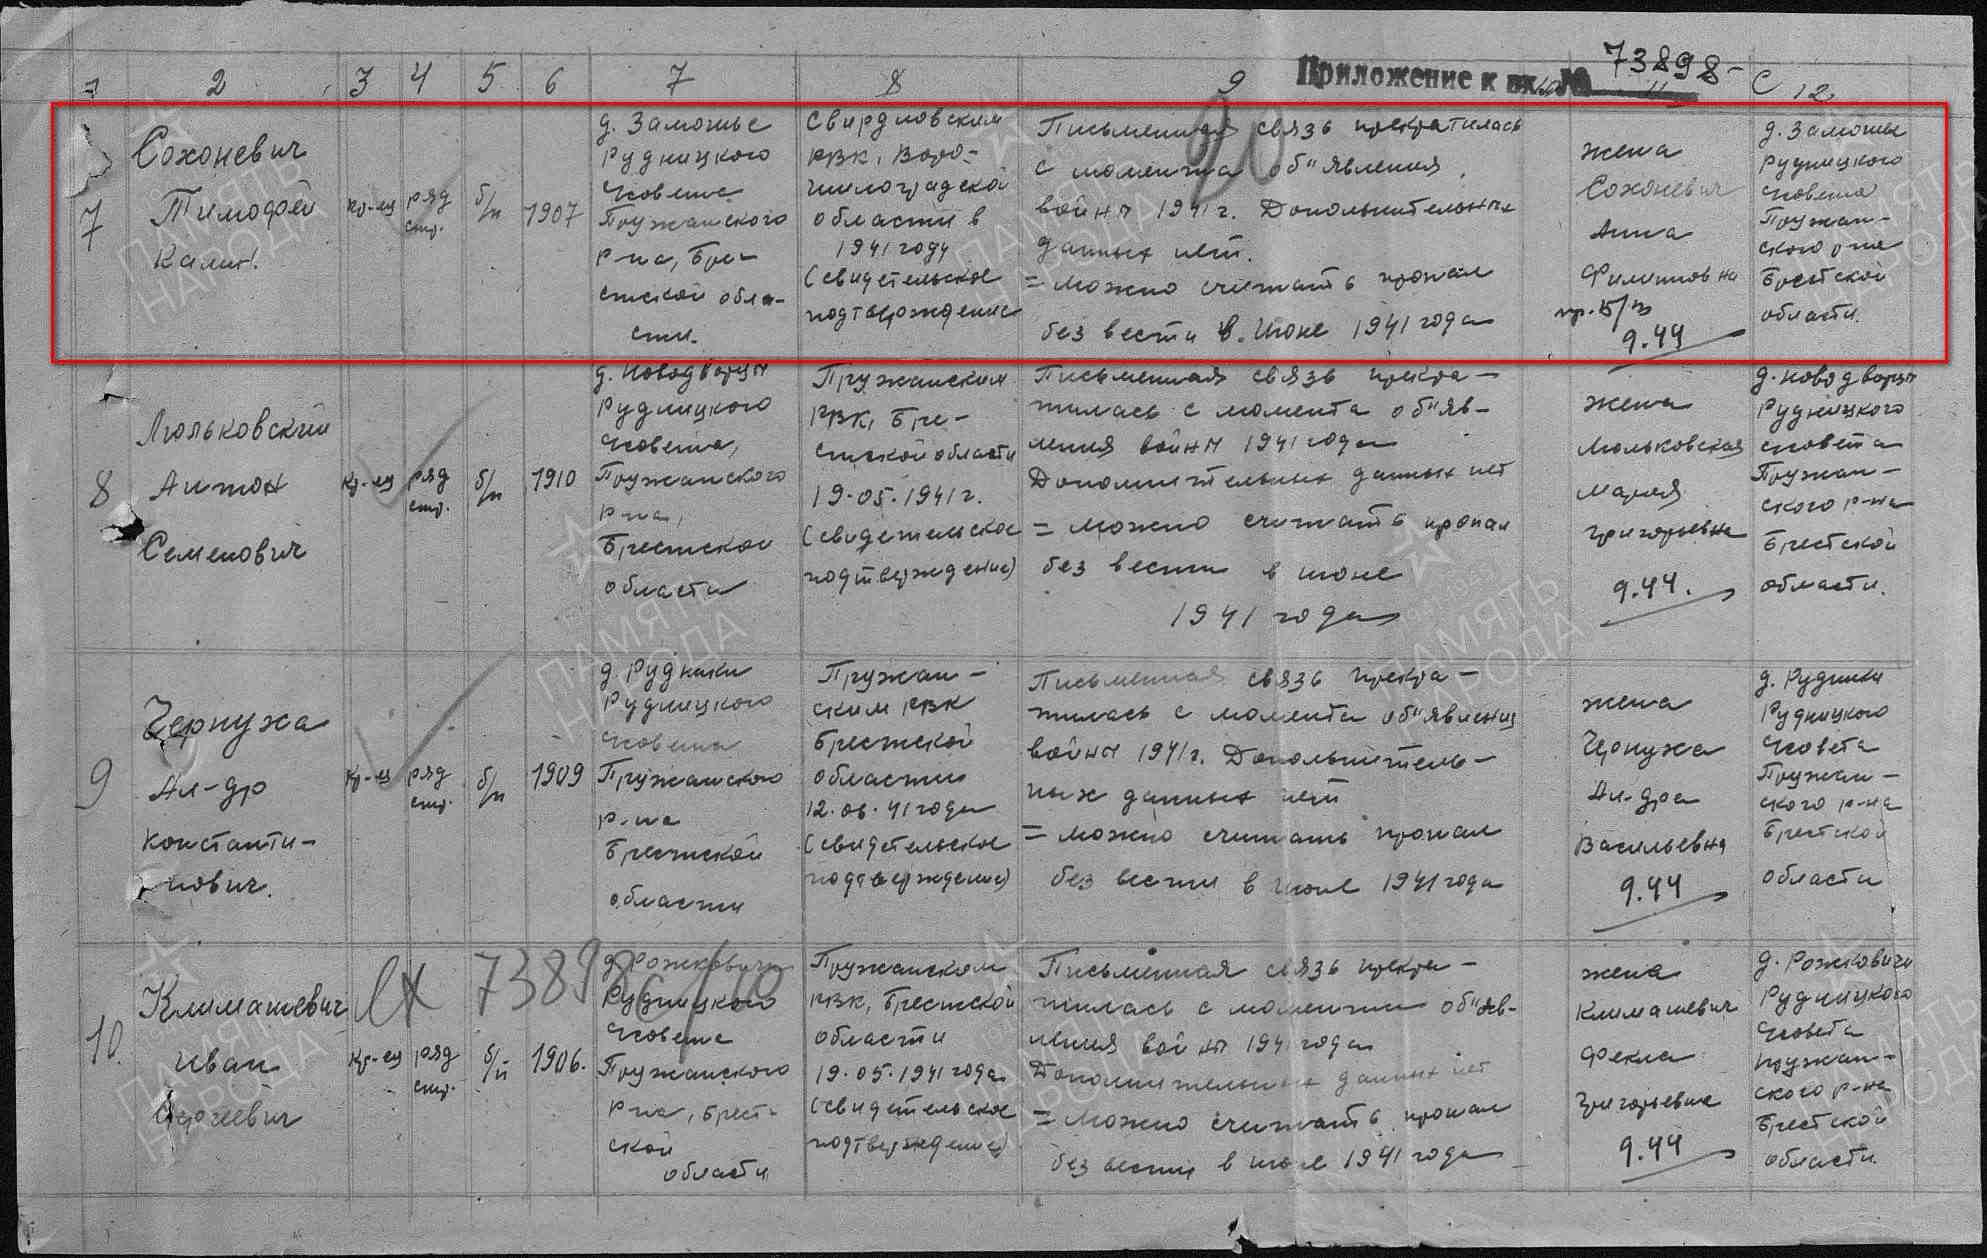 Приложение к вх. № 73898 с
1 2 3 4 5 6 7 8 9 11 12
20
7
Сохоневич
Тимофей
Калин.
кр-ец
ряд
стр.
б/п
1907
д. Замошье
Рудницкого
с/совета
Пружанского
р-на, Бре-
стской обла-
сти.
Свирдловским
РВК, Воро-
шилоградской
области в
1941 году
(свидетельское
подтверждение
Письменная связь прекратилась
с момента об"явления
войны 1941 г. Дополнительных
данных нет.
= Можно считать пропал
без вести в. июне 1941 года
жена
Сохоневич
Анна
Филиповна
пр. Б/п
9.44
д. Замошье
Рудницкого
с/совета
Пружан-
ского р-на
Брестской
области.
8
Люльковский
Антон
Семенович
кр-ец
ряд
стр.
б/п
1910
д. Новодворцы
Рудницкого
с/совета,
Пружанского
р-на,
Брестской
области
Пружанским
РВК, Бре-
стской области
19.05.1941 г.
(свидетельское
подтверждение)
Письменная связь прекра-
тилась с момента об"яв-
ления войны 1941 года
Дополнительных данных нет
= Можно считать пропал
без вести в июне
1941 года
жена
Люльковская
Мария
Григорьевна
9.44.
д. Новодворцы
Рудницкого
с/совета
Пружан-
ского р-на
Брестской
области.
9
Чернужа
Ал-др
Константи-
нович.
кр-ец
ряд
стр.
б/п
1909
д. Рудники
Рудницкого
с/совета
Пружанского
р-на
Брестской
области
Пружан-
ским РВК
Брестской
области
12.06.41 года
(свидетельское
подтверждение)
Письменная связь прекра-
тилась с момента об"явления
войны 1941 г. Дополнитель-
ных данных нет
= Можно считать пропал
без вести в июле 1941 года
жена
Чернужа
Ал-дра
Васильевна
9.44
д. Рудники
Рудницкого
с/совета
Пружан-
ского р-на
Брестской
области
73898с/10
10.
Климашевич
Иван
Сергеевич
кр-ец
ряд
стр.
б/п
1906.
д. Рожковичи
Рудницкого
с/совета
Пружанского
р-на, Брест-
ской
области
Пружанским
РВК, Брестской
области
19.05.1941 года
(свидетельское
подтверждение)
Письменная связь прекра-
тилась с момента об"яв-
ления войны 1941 года
Дополнительных данных нет
= Можно считать пропал
без вести в июле 1941 года
жена
Климашевич
Фекла
Григорьевна
9.44
д. Рожковичи
Рудницкого
с/совета
Пружан-
ского р-на
Брестской
области.
ПАМЯТЬ
НАРОДА